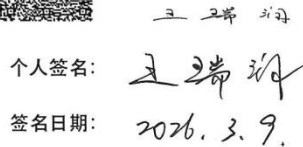 王瑞
个人签名：王瑞
签名日期：2026.3.9.